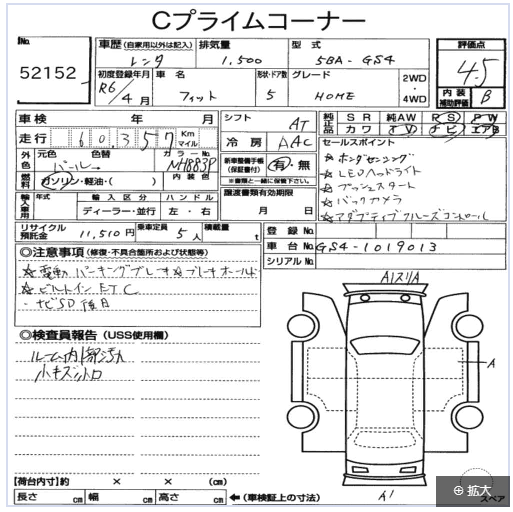 Cプライムコーナー
No.
52152
車歴(自家用以外は記入)
レンタ
排気量
1,500
型式
5BA-GS4
評価点
4.5
初度登録年月
R6/4月
車名
フィット
形状・ドア数
5
グレード
HOME
2WD
・
4WD
内装
補助評価
B
車検 年 月
シフト
AT
純正品
SR 純AW PS PW
カワ TV ナビ エアB
走行
60,357
Km
マイル
冷房
AAC
セールスポイント
外色
元色
パール
色替
カラーNo.
NH883P
☆ホンダセンシング
新車整備手帳
(保証書付)
有・無
※書類と一緒に保管下さい。
☆LEDヘッドライト
燃料
ガソリン・軽油・( )
内装色
☆プッシュスタート
輸入車用
年式
輸入区分
ディーラー・並行
ハンドル
左・右
譲渡書類有効期限
月 日
☆バックカメラ
☆アダプティブクルーズコントロール
リサイクル
預託金
11,510円
乗車定員
5人
積載量
t
登録No.
車台No.
GS4-1019013
シリアルNo.
◎注意事項(修復・不具合箇所および状態等)
☆電動パーキングブレーキ☆ブレーキホールド
☆ビルトインETC
・ナビSD後日
◎検査員報告(USS使用欄)
ルーム内部汚れ
小キズ小凹
A1スリA
A
A1
スペア
【荷台内寸】約 × × (cm)
長さ cm 幅 cm 高さ cm
←(車検証上の寸法)
拡大